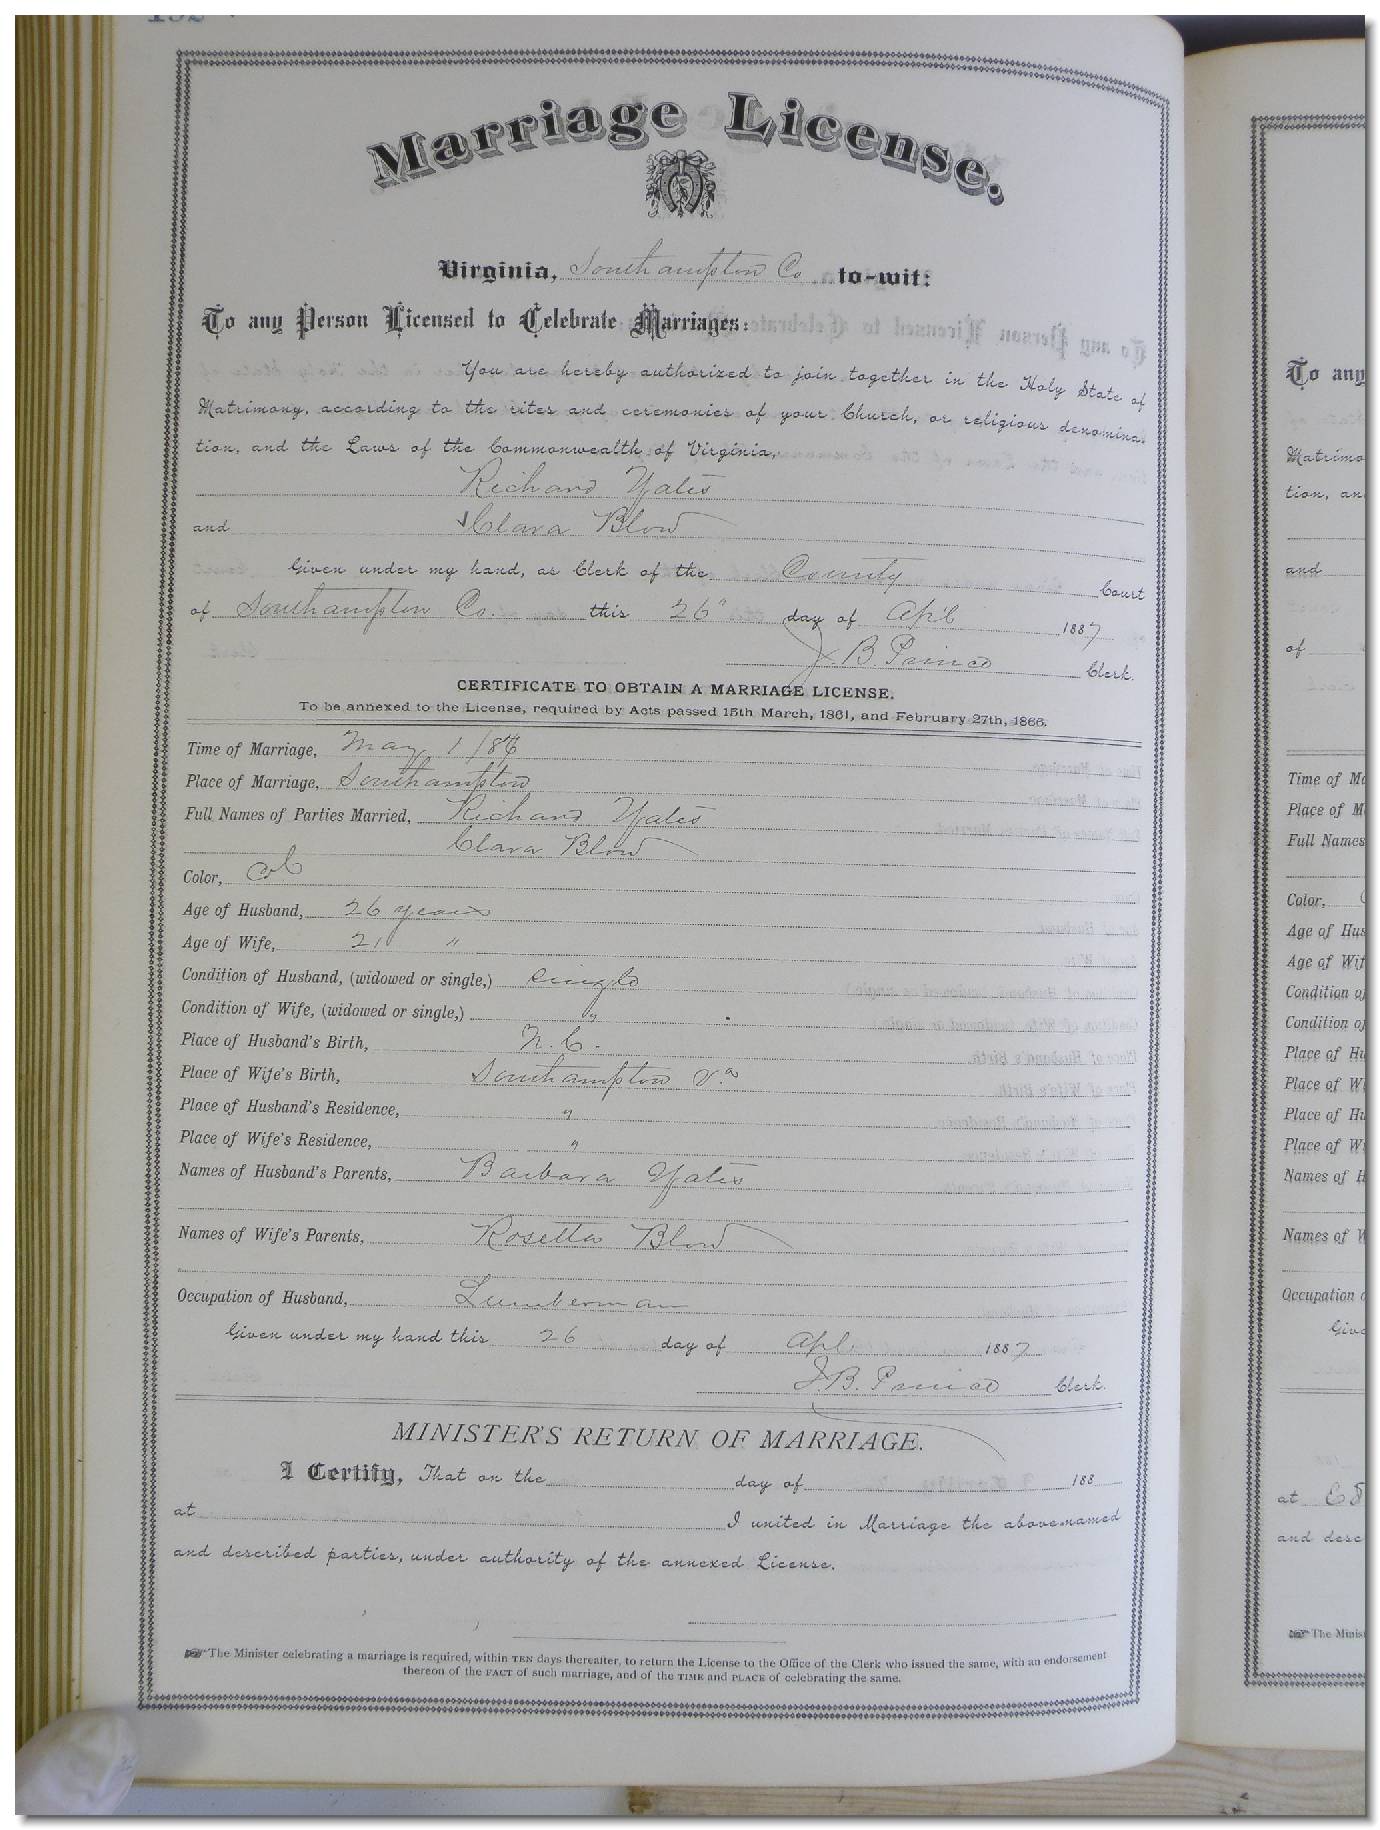 Marriage License.
Virginia, Southampton Co. to-wit:
To any Person Licensed to Celebrate Marriages:
You are hereby authorized to join together in the Holy State of
Matrimony, according to the rites and ceremonies of your Church, or religious denomina-
tion, and the Laws of the Commonwealth of Virginia,
Richard Yates
and Clara Blow
Given under my hand, as Clerk of the County Court
of Southampton Co. this 26" day of Apl 1887
J. B. Prince Clerk.
CERTIFICATE TO OBTAIN A MARRIAGE LICENSE.
To be annexed to the License, required by Acts passed 15th March, 1861, and February 27th, 1866.
Time of Marriage, May 1
Place of Marriage, Southampton
Full Names of Parties Married, Richard Yates
Clara Blow
Color, Col
Age of Husband, 26 years
Age of Wife, 21 "
Condition of Husband, (widowed or single,) single
Condition of Wife, (widowed or single,) "
Place of Husband's Birth, N. C.
Place of Wife's Birth, Southampton Va
Place of Husband's Residence, "
Place of Wife's Residence, "
Names of Husband's Parents, Barbara Yates
Names of Wife's Parents, Rosetta Blow
Occupation of Husband, Lumberman
Given under my hand this 26 day of Apl 1887
J. B. Prince Clerk.
MINISTER'S RETURN OF MARRIAGE.
I Certify, That on the day of 188
at I united in Marriage the above named
and described parties, under authority of the annexed License.
The Minister celebrating a marriage is required, within TEN days thereafter, to return the License to the Office of the Clerk who issued the same, with an endorsement
thereon of the FACT of such marriage, and of the TIME and PLACE of celebrating the same.
To any
Matrimo
tion, an
and
of
Time of Ma
Place of M
Full Names
Color,
Age of Hus
Age of Wif
Condition o
Condition o
Place of Hu
Place of Wi
Place of Hu
Place of W
Names of H
Names of W
Occupation o
Give
at
and desc
The Minis